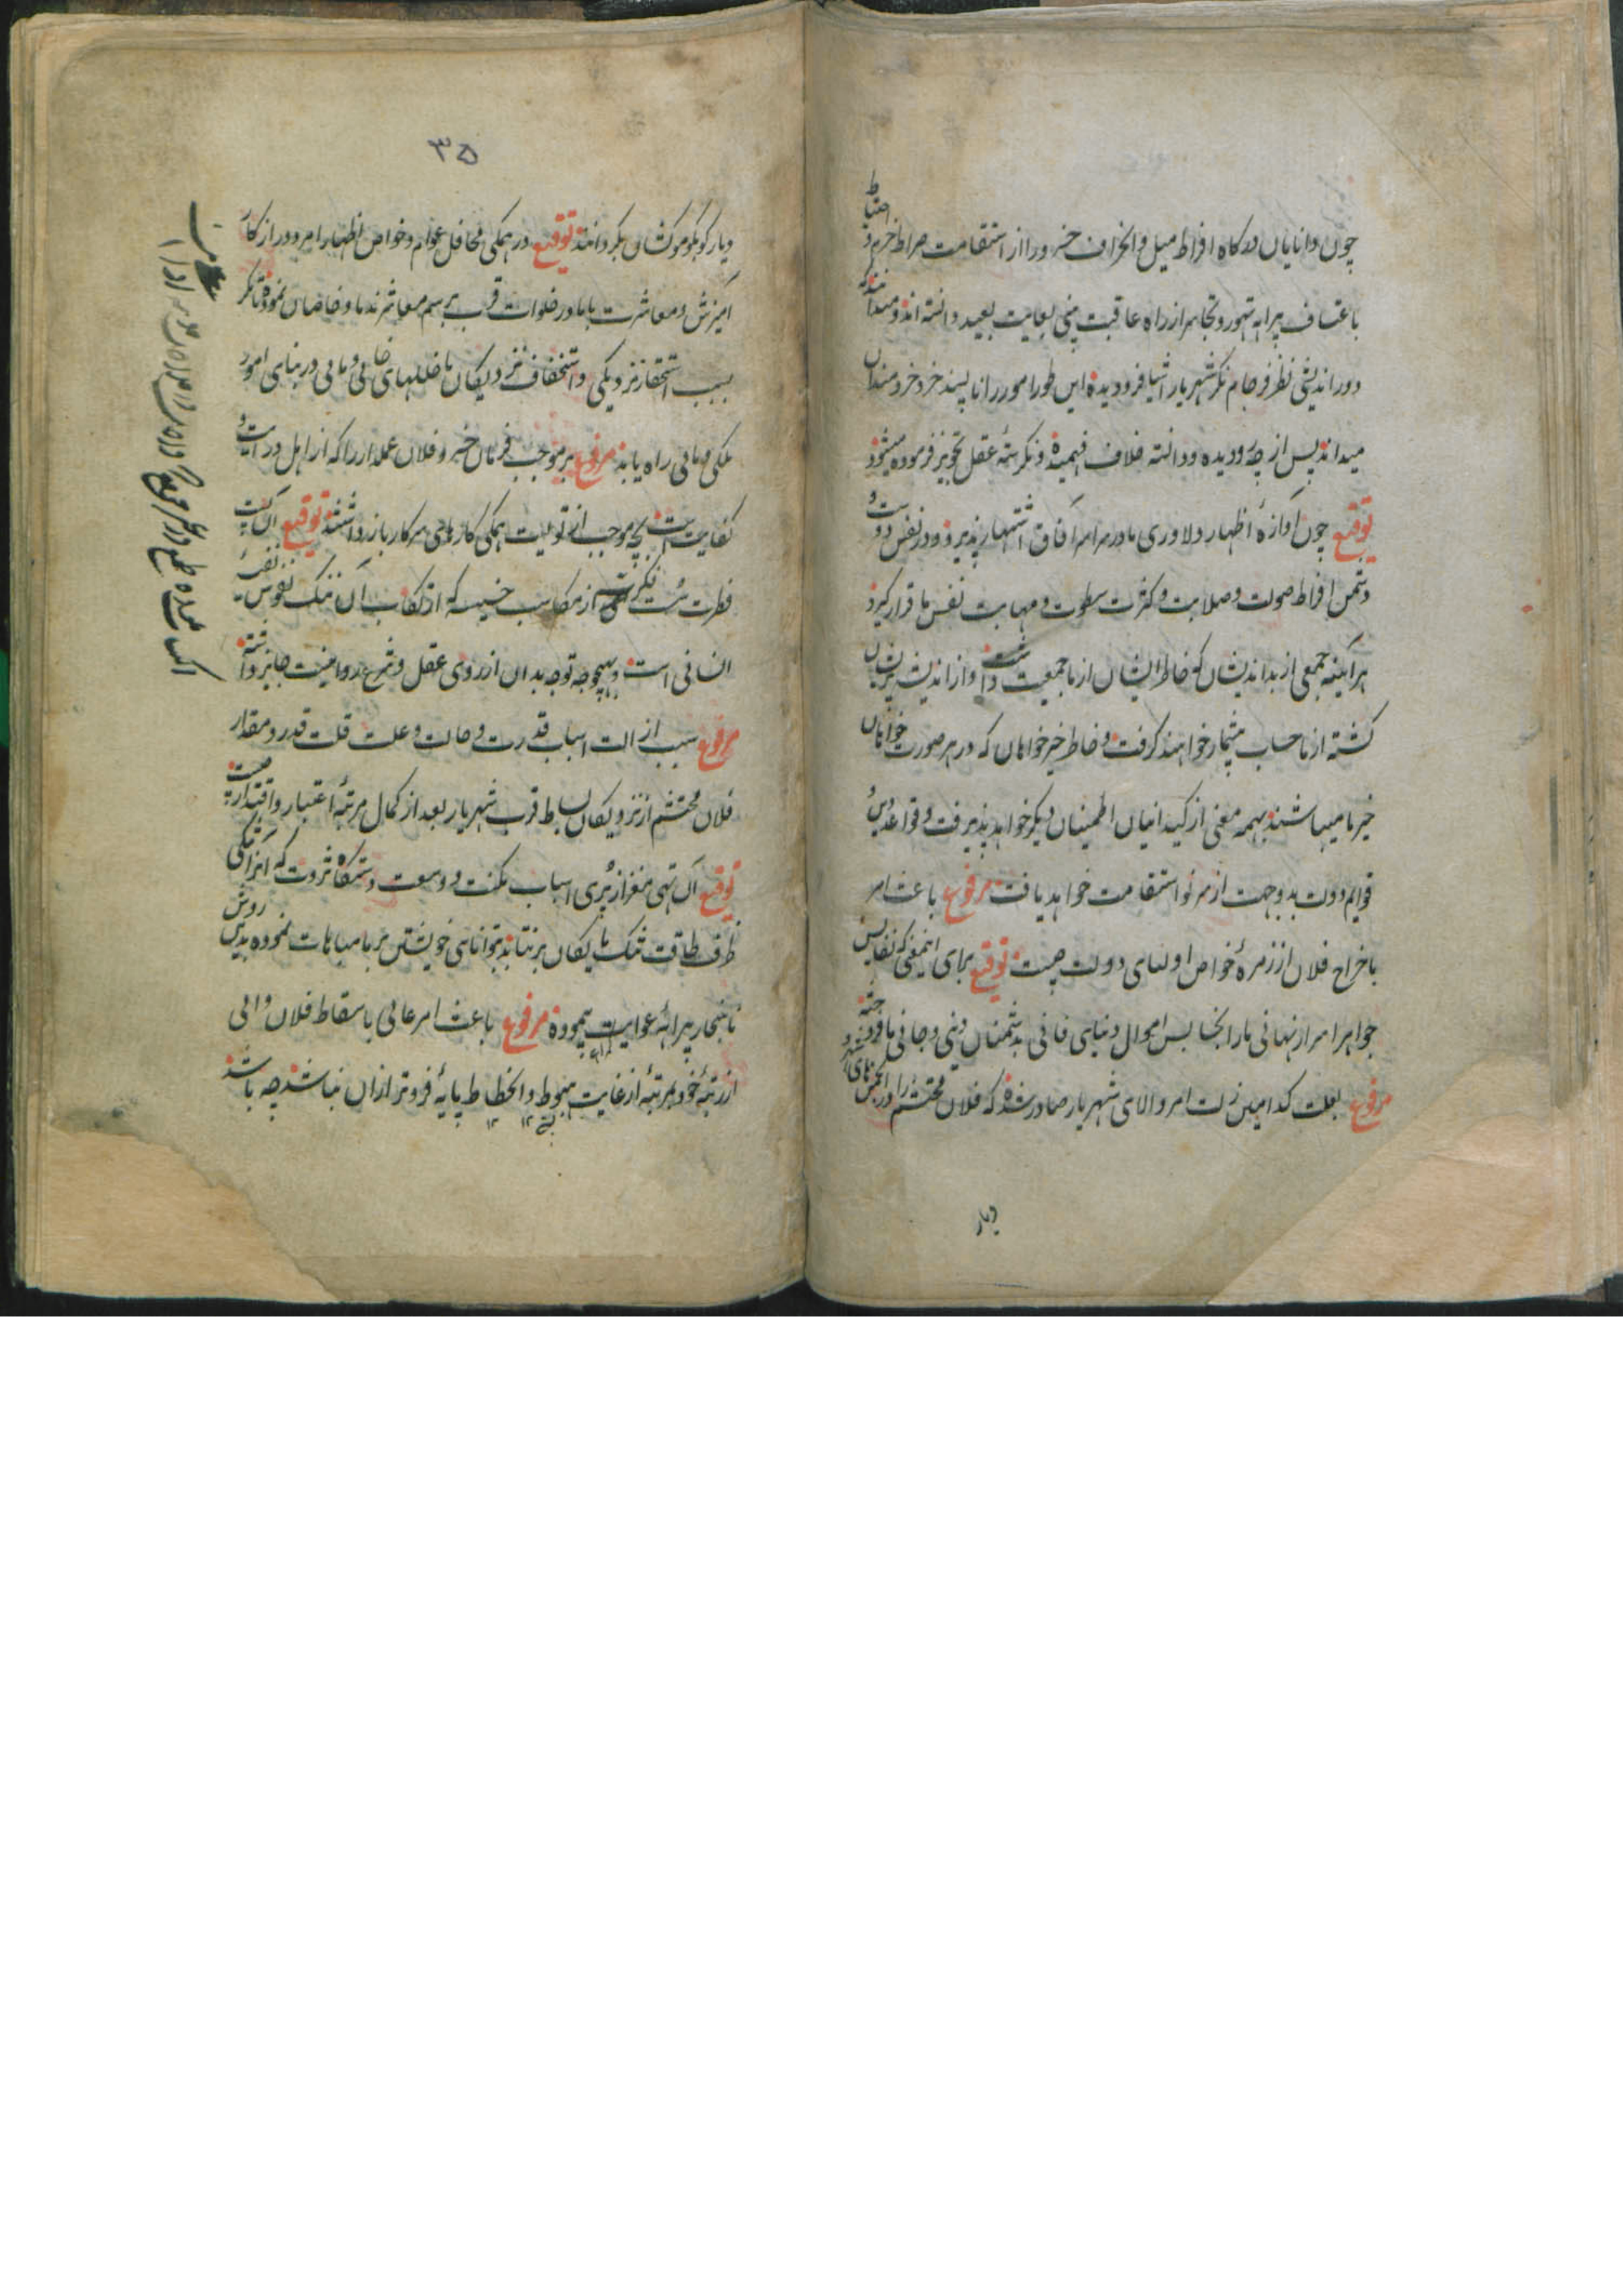 چون دانایان درگاه افراط میل و انحراف خسرو را از استقامت صراط حزم و احتیاط
باعتساف پیرایه تهور و تجاسر از راه عاقبت بینی بغایت بعید دانسته اند و میدانند که
دور اندیشی نظر فرجام نگر شهریار اشیا فرو دیده این طور امور را ناپسند خرد خردمندان
میداند پس از چه رو دیده و دانسته خلاف فهمیده و نکر بتهٔ عقل تجویز فرموده میشود
توقیع چون آوازهٔ اظهار دلاوری ما در سراسر آفاق اشتهار پذیرد و در نفس دوست و
دشمن افراط صولت و صلابت و کثرت سطوت و مهابت نفس ما قرار گیرد
هرآینه جمعی از بداندیشان که خاطر ایشان از ما جمعیت داشت و از اندیشه پریشان
گشته از ما حساب بیشمار خواهند گرفت و خاطر خیرخواهان که در هر صورت خواهان
خیر ما میباشند بهمه معنی از کید آنیان اطمینان دیگر خواهد پذیرفت و قواعد دین و
قوایم دولت بدو جهت از سر نو استقامت خواهد یافت مرفوع باعث امر
باخراج فلان از زمرهٔ خواص اولیای دولت چیست توقیع برای اینمعنی که نفایس
جواهر اسرار نهانی ما را بخسایس اموال دنیای فانی بدشمنان دینی و جانی ما فروخته
مرفوع بعلت کدامین زلت امر والای شهریار صادر شده که فلان محتشم را در انجمنهای شهر و
دیار
۳۵
دیار کو بکو موکشان بگردانند توقیع در همگی محافل عوام و خواص اظهار امر دور از کار
آمیزش و معاشرت با ما در خلوات قرب برسم معاشر ندما و خاصان نموده تا نگر
بسبب استحقار نزدیکی و استخفاف نزدیکان ما خللهای خانی و مانی در بنای امور
ملکی و مالی راه یابد مرفوع بر موجب فرمان خسرو فلان عملدار را که از اهل درایت و
کفایت است بچه موجب از تولیت همگی کارهای سرکار باز داشتند توقیع آن پست
فطرت پست فکرت از مکاسب خسیسه که ارتکاب آن ننگ نفوس نفیسهٔ
انسانی است و بهیچوجه توجه بدان از روی عقل و شرع روا نیست جایز داشته
مرفوع سبب ازالت اسباب قدرت و حالت و علت قلت قدر و مقدار
فلان محتشم از نزدیکان بساط قرب شهریار بعد از کمال مرتبهٔ اعتبار و اقتدار چیست
توقیع آن تهی مغز از پری اسباب مکنت و وسعت دستگاه ثروت که از تنگی
ظرف طاقت تنک مایگان برنتابد بتوانای خویشتن بر ما مباهات نموده بدین روش
ناهنجار پیرایهٔ غوایت پیموده مرفوع باعث امر عالی باسقاط فلان والی
از رتبهٔ خود بمرتبهٔ از غایت هبوط و انحطاط پایهٔ فروتر از آن نباشد چه باشد